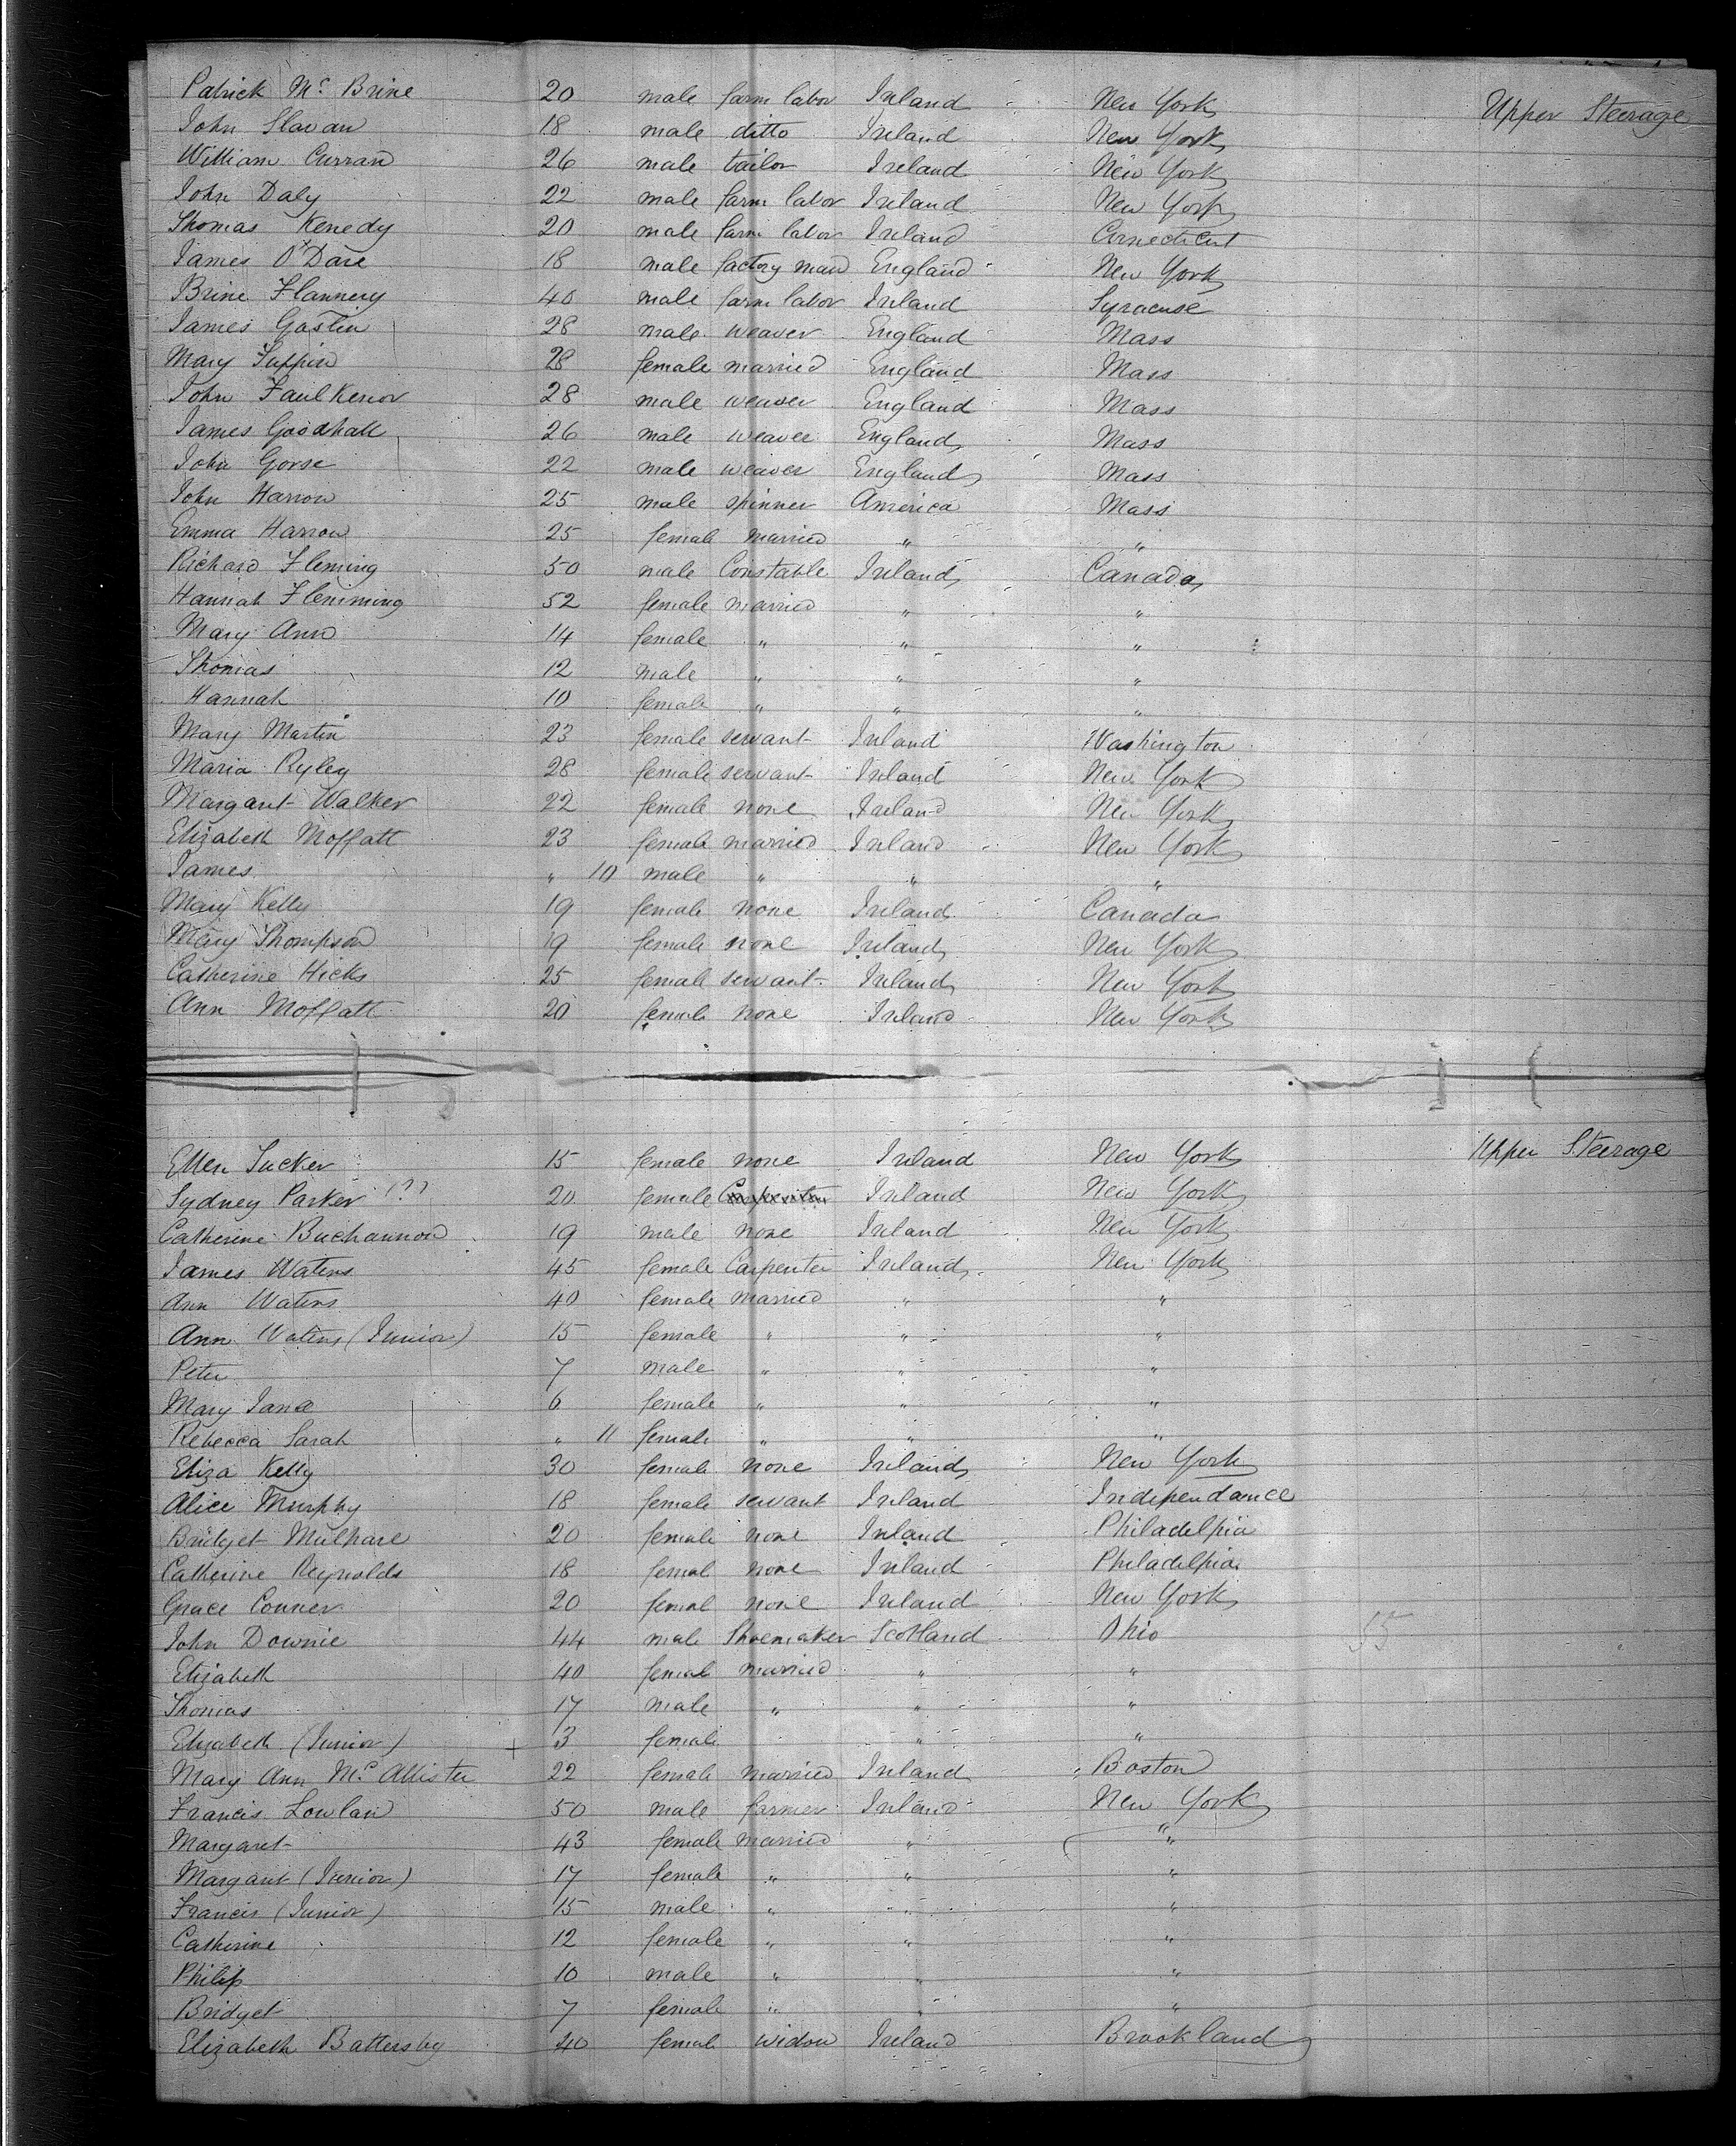 Patrick Mc Brine 20 male farm labor Ireland New York Upper Steerage
John Slavan 18 male ditto Ireland New York
William Curran 26 male tailor Ireland New York
John Daly 22 male farm labor Ireland New York
Thomas Kenedy 20 male farm labor Ireland Conecticut
James O'Dare 18 male factory man England New York
Brine Flannery 40 male farm labor Ireland Syracuse
James Gastin 28 male weaver England Mass
Mary Tuppin 28 female married England Mass
John Faulkenor 28 male weaver England Mass
James Goodhall 26 male weaver England Mass
John Gorse 22 male weaver England Mass
John Harrow 25 male spinner America Mass
Emma Harrow 25 female married " "
Richard Fleming 50 male Constable Ireland Canada
Hannah Flemming 52 female married " "
Mary Ann 14 female " " "
Thomas 12 male " " "
Hannah 10 female " " "
Mary Martin 23 female servant Ireland Washington
Maria Ryley 28 female servant Ireland New York
Margaret Walker 22 female none Ireland New York
Elizabeth Moffatt 23 female married Ireland New York
James " 10 male " " "
Mary Kelly 19 female none Ireland Canada
Mary Thompson 19 female none Ireland New York
Catherine Hicks 25 female servant Ireland New York
Ann Moffatt 20 female none Ireland New York
Ellen Tucker 15 female none Ireland New York Upper Steerage
Sydney Parker ?? 20 female Ireland New York
Catherine Buchannon 19 male none Ireland New York
James Waters 45 female Carpenter Ireland New York
Ann Waters 40 female married " "
Ann Waters (Junior) 15 female " " "
Peter 7 male " " "
Mary Jane 6 female " " "
Rebecca Sarah " 11 female " " "
Eliza Kelly 30 female none Ireland New York
Alice Murphy 18 female servant Ireland Independance
Bridget Mulhare 20 female none Ireland Philadelpia
Catherine Reynolds 18 femal none Ireland Philadelpia
Grace Conner 20 femal none Ireland New York
John Downie 44 male Shoemaker Scotland Ohio 55
Elizabeth 40 female married " "
Thomas 17 male " " "
Elizabeth (Junior) + 3 female " "
Mary Ann Mc Allister 22 female married Ireland Boston
Francis Lowlan 50 male farmer Ireland New York
Margaret 43 female married " "
Margaret (Junior) 17 female " " "
Francis (Junior) 15 male " " "
Catherine 12 female " " "
Philip 10 male " " "
Bridget 7 female " " "
Elizabeth Battersby 40 female widow Ireland Brookland